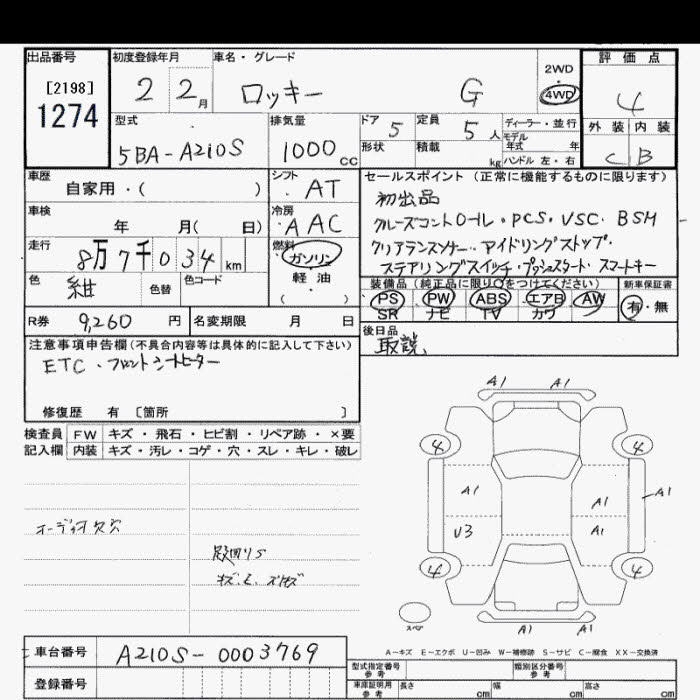 出品番号 初度登録年月 車名・グレード 2WD ・ 4WD 評価点
[2198] 2 2月 ロッキー G 4
1274 型式 排気量 ドア 5 定員 5人 ディーラー・並行 外装 内装
5BA-A210S 1000cc 形状 積載 kg モデル年式 年 ハンドル 左・右 C B
車歴 シフト セールスポイント (正常に機能するものに限ります)
自家用・( ) AT 初出品
車検 冷房 クルーズコントロール・PCS・VSC・BSM
年 月( 日) AAC クリアランスソナー・アイドリングストップ・
走行 8万7千034km 燃料 ガソリン ステアリングスイッチ・プッシュスタート・スマートキー
色 紺 色替 色コード 軽油 ・( ) 装備品 (純正品に限り○をつけてください) 新車保証書
PS PW ABS エアB AW 有・無
SR ナビ TV カワ
R券 9,260円 名変期限 月 日 後日品
取説、
注意事項申告欄(不具合内容等は具体的に記入して下さい)
ETC・フロントシートヒーター
修復歴 有 〔箇所 〕
検査員 FW キズ・飛石・ヒビ割・リペア跡・×要
記入欄 内装 キズ・汚レ・コゲ・穴・スレ・キレ・破レ
A1 A1
4 4
A1 A1 A1
オーディオ欠 U3 A1
4 4
スペア A1 A1
A-キズ E-エクボ U-凹み W-補修跡 S-サビ C-腐食 XX-交換済
車台番号 A210S-0003769 型式指定番号 参考 類別区分番号 参考
登録番号 車庫証明用 参考 長さ cm 幅 cm 高さ cm